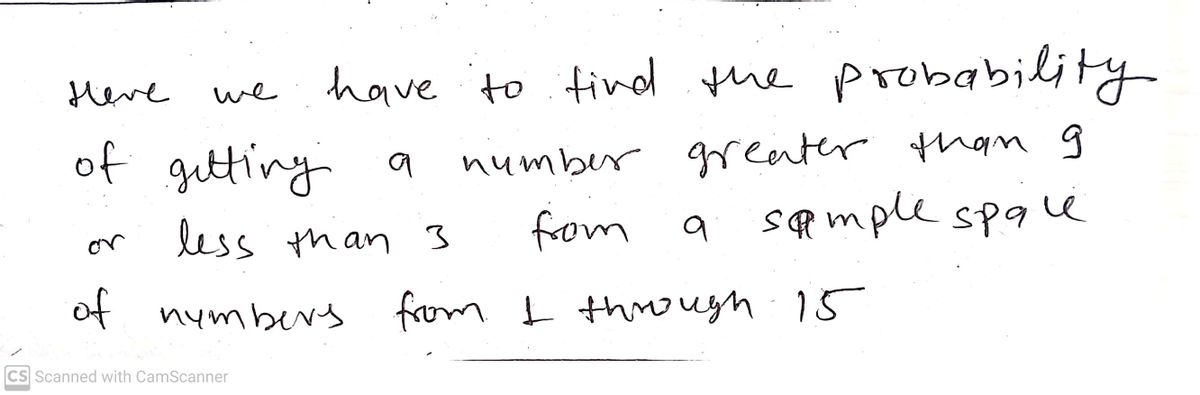 Here we have to find the probability
of getting a number greater than 9
or less than 3 from a sample space
of numbers from 1 through 15
CS Scanned with CamScanner